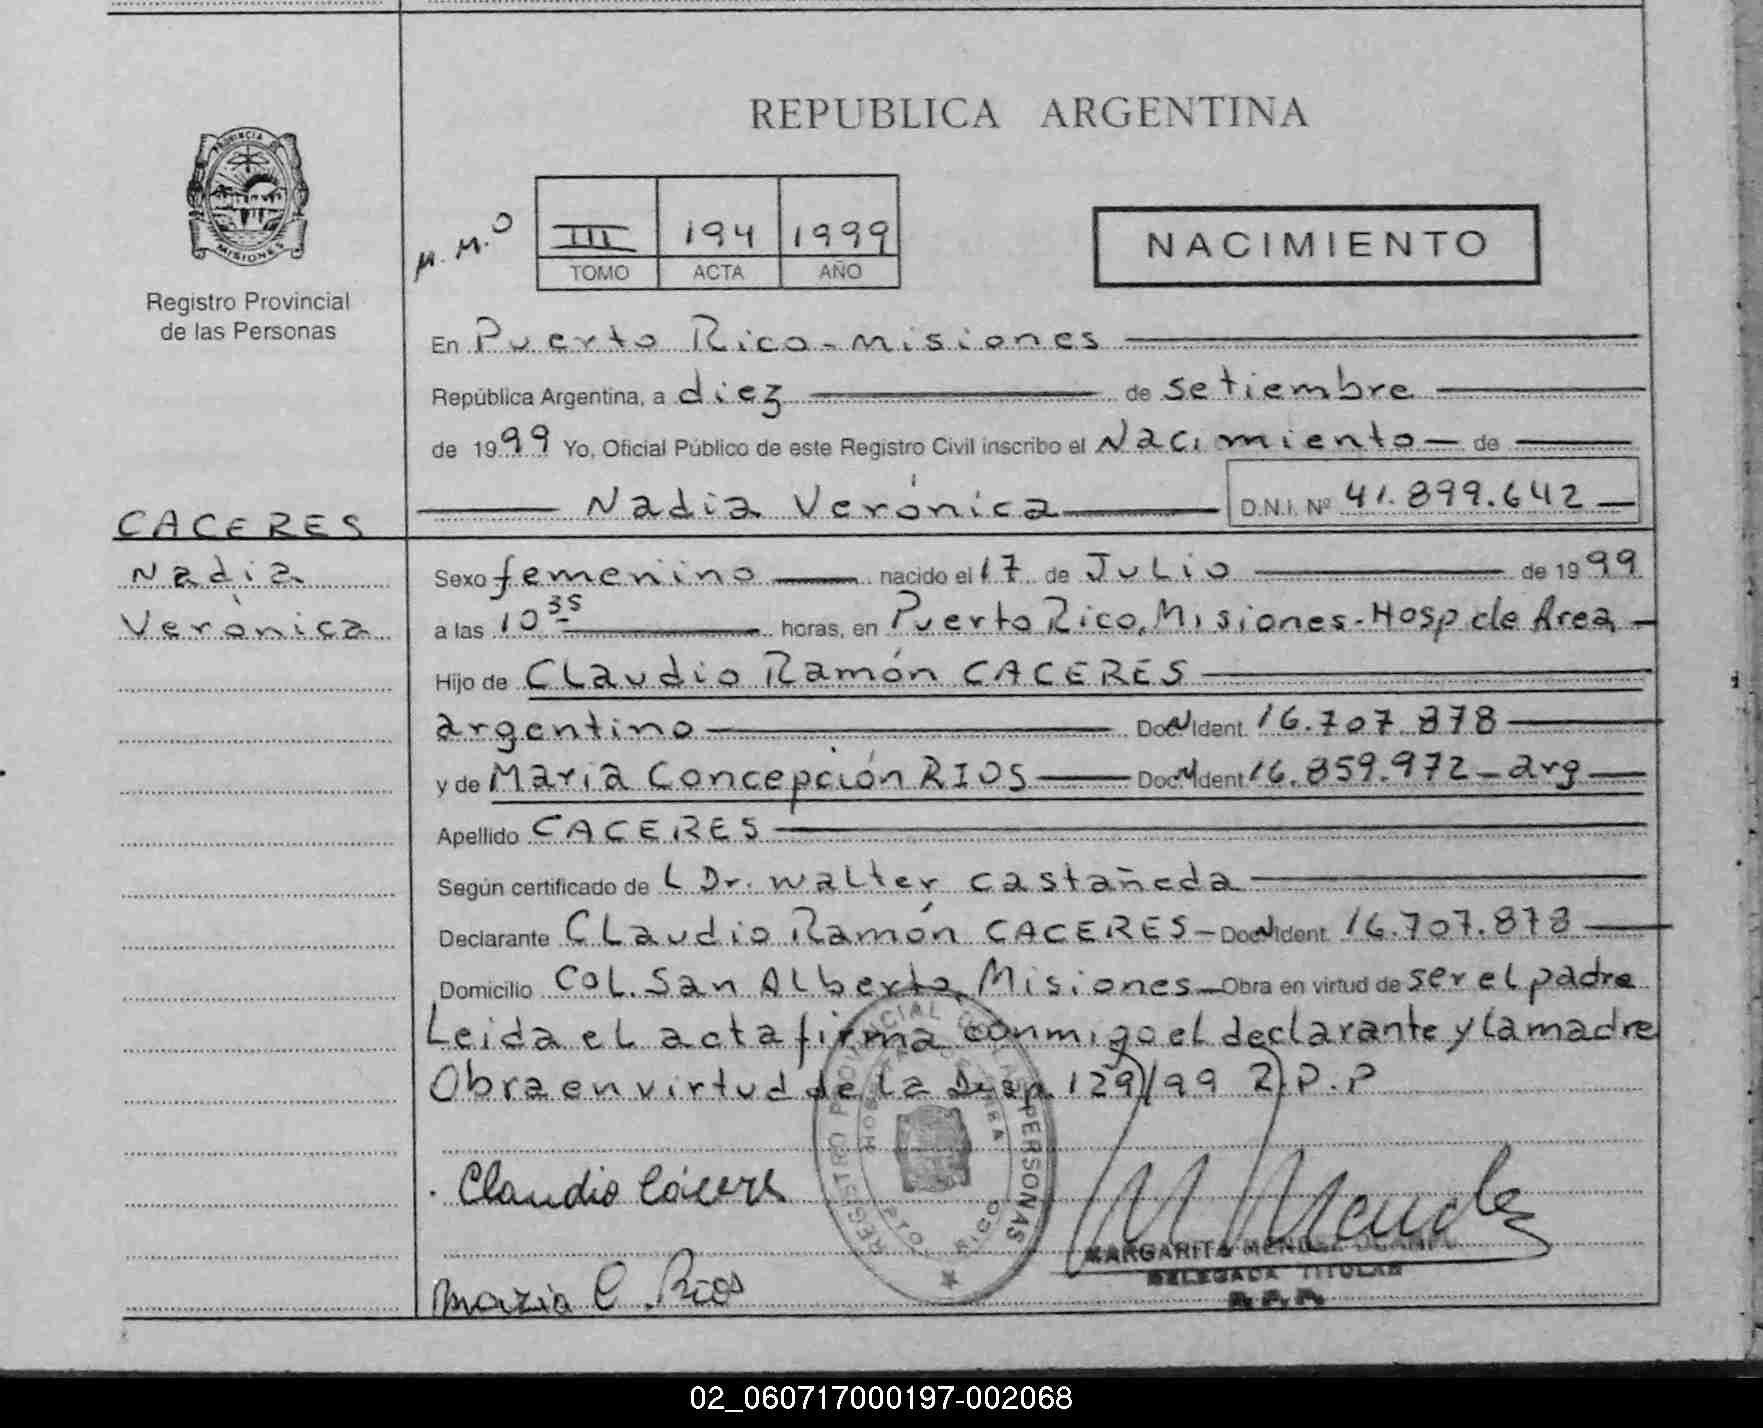 REPUBLICA ARGENTINA
PROVINCIA DE
MISIONES
Registro Provincial
de las Personas
M.M.O
III 194 1999
TOMO ACTA AÑO
NACIMIENTO
En Puerto Rico - Misiones
República Argentina, a diez de setiembre
de 1999 Yo, Oficial Público de este Registro Civil inscribo el Nacimiento de
Nadia Verónica D.N.I. Nº 41.899.642
CACERES
Nadia
Verónica
Sexo femenino nacido el 17 de Julio de 1999
a las 10 35 horas, en Puerto Rico, Misiones - Hosp de Area
Hijo de Claudio Ramón CACERES
argentino Doc N Ident. 16.707.878
y de Maria Concepción RIOS Doc N Ident 16.859.972 - arg
Apellido CACERES
Según certificado de L Dr. Walter Castañeda
Declarante Claudio Ramón CACERES - Doc N Ident. 16.707.878
Domicilio Col. San Alberto, Misiones - Obra en virtud de ser el padre
Leida el acta firma conmigo el declarante y la madre
Obra en virtud de la Disp. 129/99 R.P.P
REGISTRO PROVINCIAL DE LAS PERSONAS
PTO. RICO
Claudio Cáceres
Maria C. Rios
MARGARITA MENDEZ
DELEGADA TITULAR
R.P.P.
02_060717000197-002068